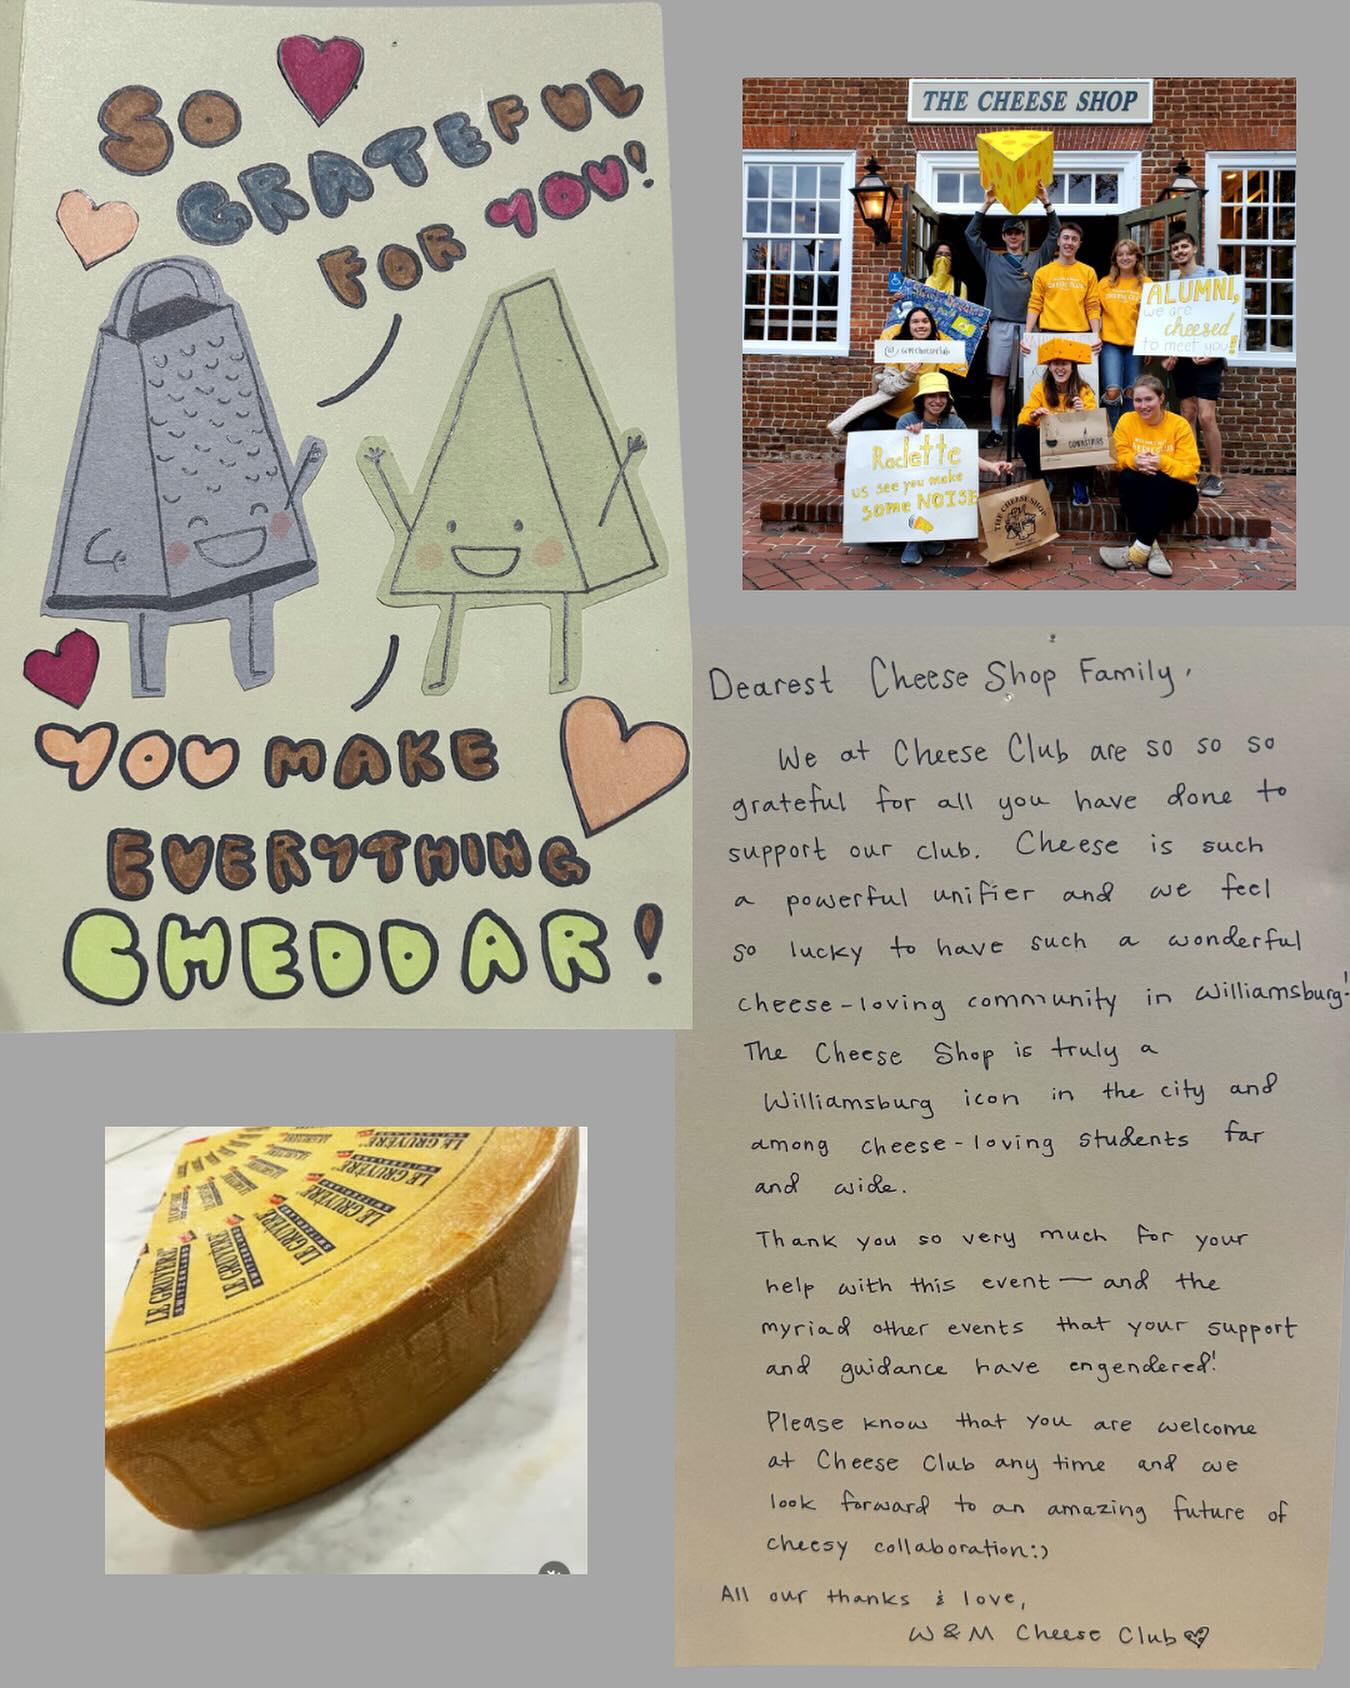 SO
GRATEFUL
FOR YOU!
YOU MAKE
EVERYTHING
CHEDDAR!
THE CHEESE SHOP
ALUMNI,
we are
cheesed
to meet you!
Raclette
us see you make
some NOISE
THE CHEESE SHOP
Dearest Cheese Shop Family,
We at Cheese Club are so so so
grateful for all you have done to
support our club. Cheese is such
a powerful unifier and we feel
so lucky to have such a wonderful
cheese-loving community in Williamsburg!
The Cheese Shop is truly a
Williamsburg icon in the city and
among cheese-loving students far
and wide.
Thank you so very much for your
help with this event — and the
myriad other events that your support
and guidance have engendered!
Please know that you are welcome
at Cheese Club any time and we
look forward to an amazing future of
cheesy collaboration:)
All our thanks & love,
W&M Cheese Club
LE GRUYÈRE
SWITZERLAND
LE GRUYÈRE
SWITZERLAND
LE GRUYÈRE
SWITZERLAND
LE GRUYÈRE
SWITZERLAND
LE GRUYÈRE
SWITZERLAND
LE GRUYÈRE
SWITZERLAND